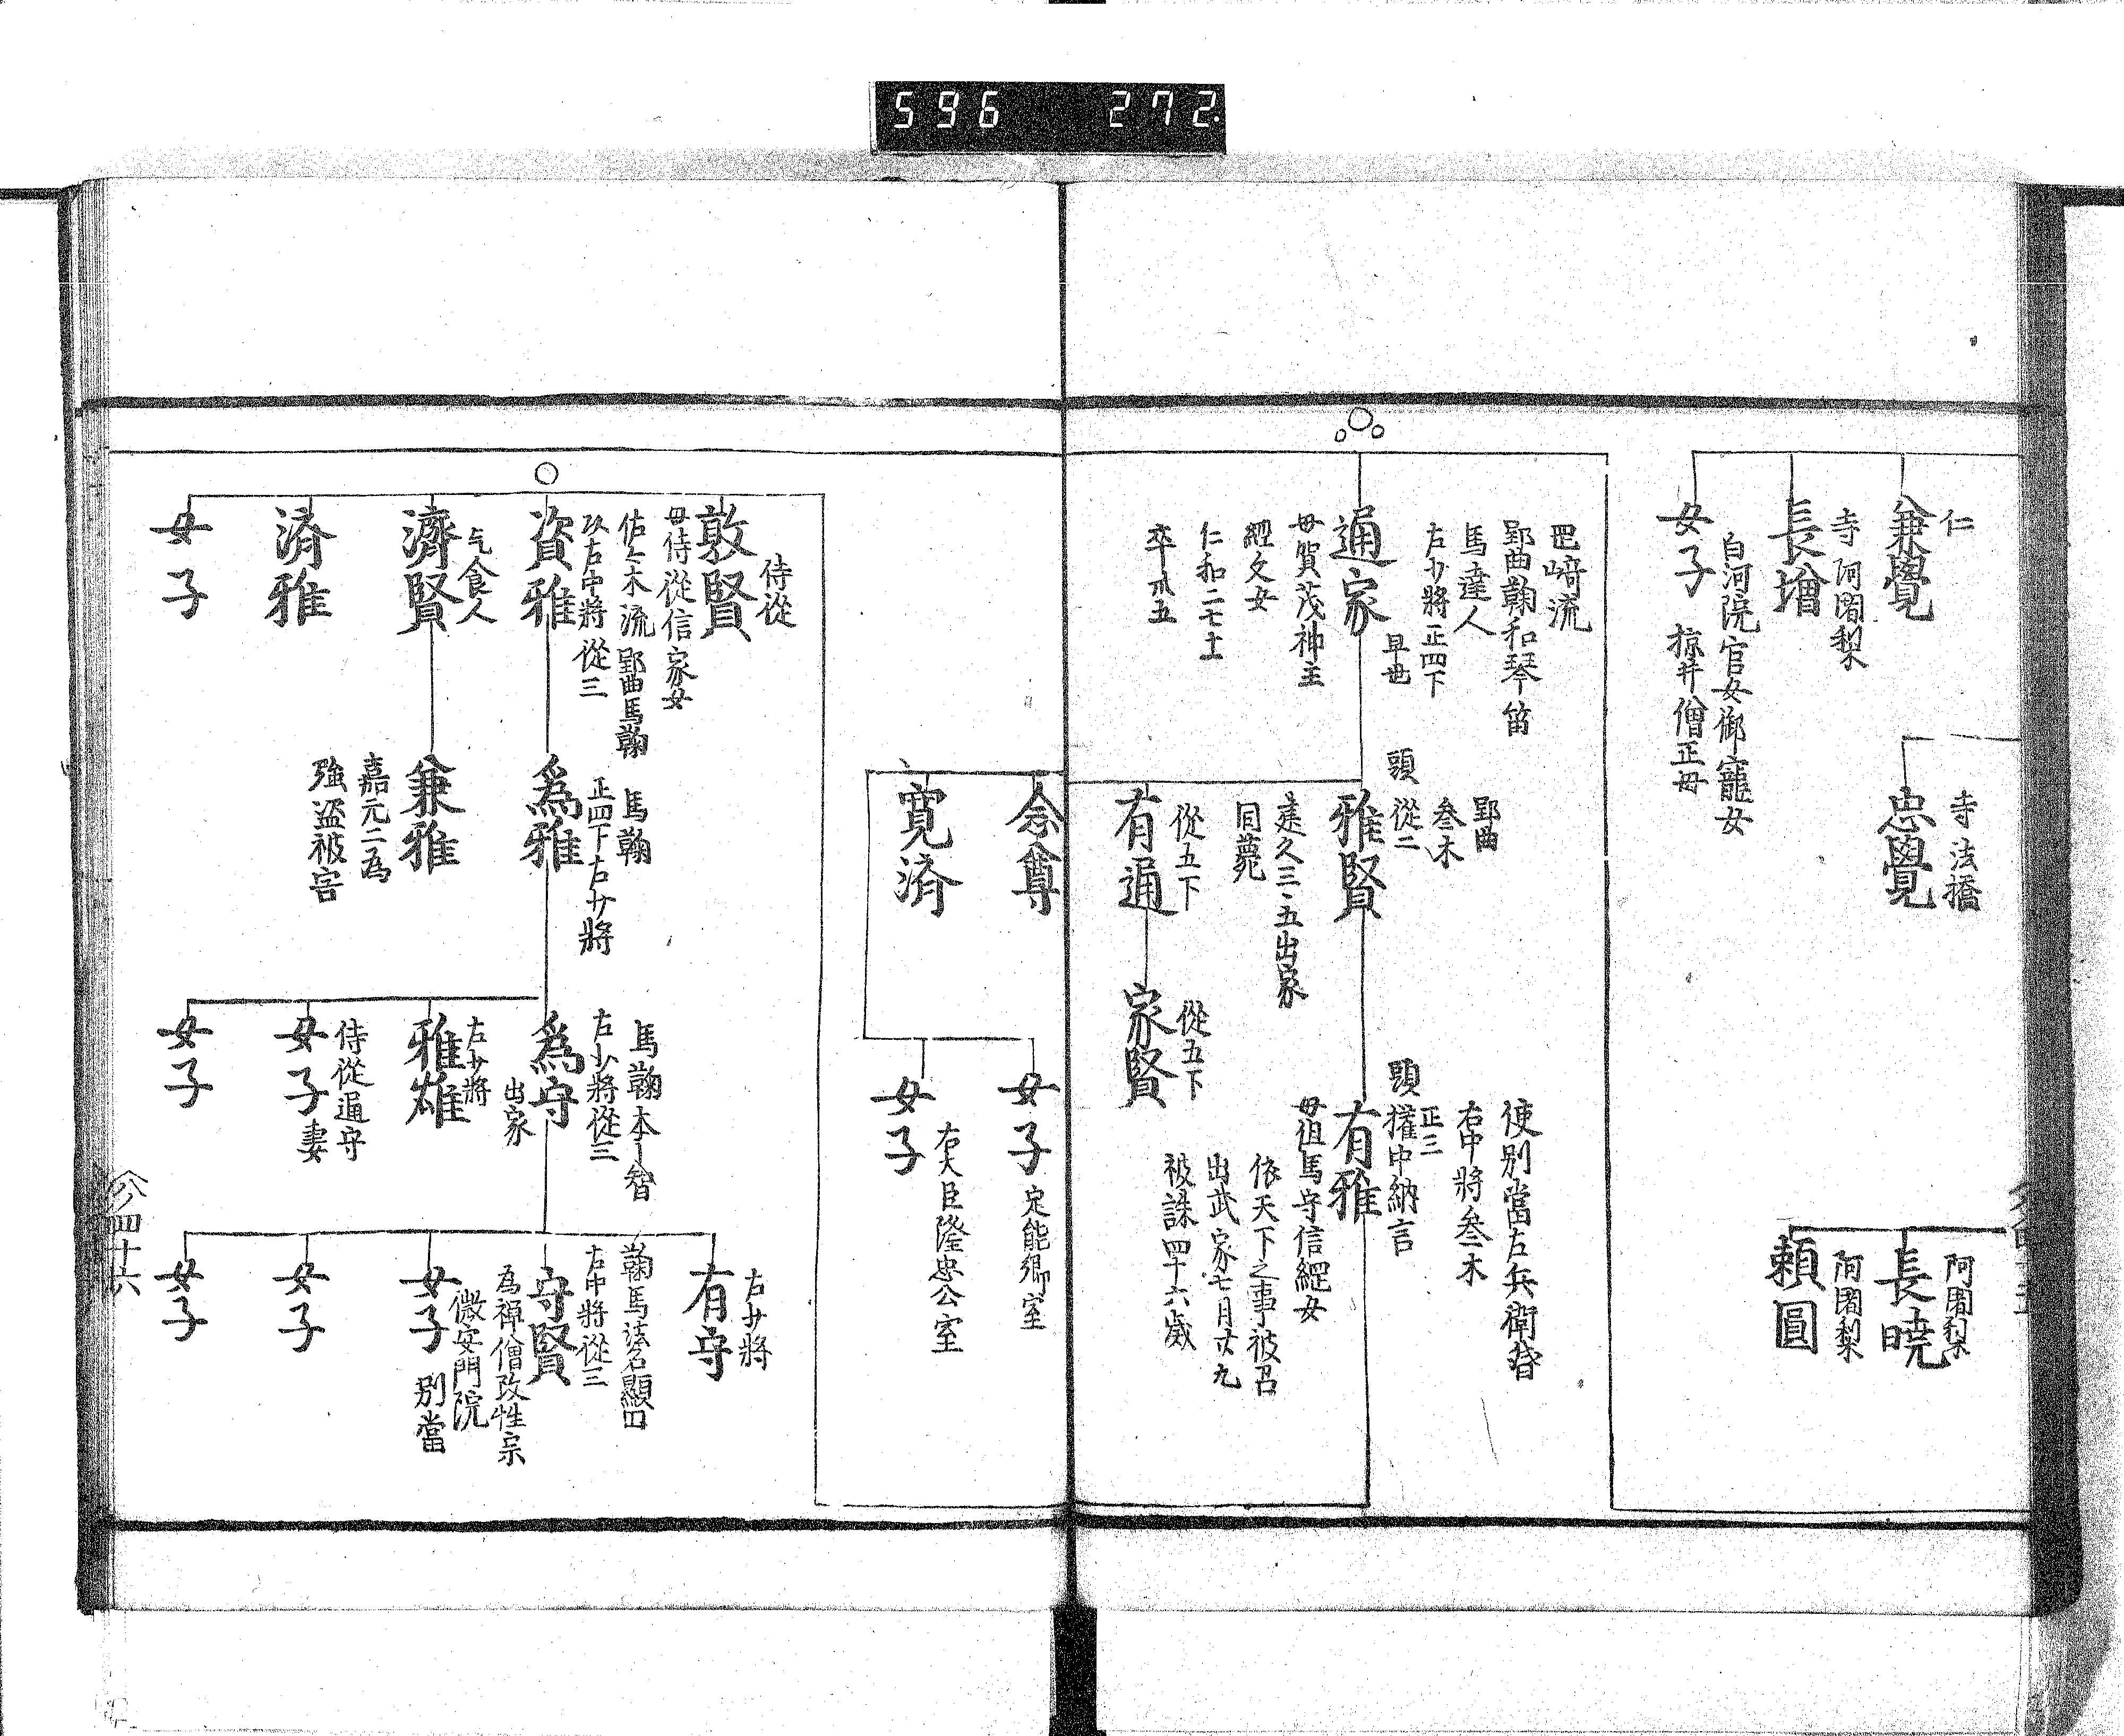 596 272
仁
兼覺
寺阿闍梨
長增
女子
白河院官女御寵女
掠井僧正母
寺法橋
忠覺
阿闍梨
長曉
阿闍梨
賴圓
郢曲鞠和琴笛
馬達人
左少將正四下
早世
通家
母賀茂神主
經文女
仁和二七十一
卒卅五
郢曲
叅木
頭從二
雅賢
建久三・五出家
同薨
從五下
有通
從五下
家賢
使別當左兵衛督
右中將叅木
正三
頭權中納言
有雅
母但馬守信經女
依天下之事被召
出武家七月廿九
被誅四十六歲
念尊
寬済
女子
定能卿室
女子
右大臣隆忠公室
侍從
敦賢
母侍從信家女
佐々木流郢曲馬鞠
右中將從三
資雅
乞食人
濟賢
済雅
女子
馬鞠
正四下右少將
爲雅
兼雅
嘉元二為
強盜被害
馬鞠本智
右少將從三
爲守
出家
左少將
雅雄
侍從通守
女子妻
女子
左少將
有守
鞠馬法名顯
右中將從三
守賢
為禅僧改性宗
女子
微安門院
別當
女子
女子
四十六